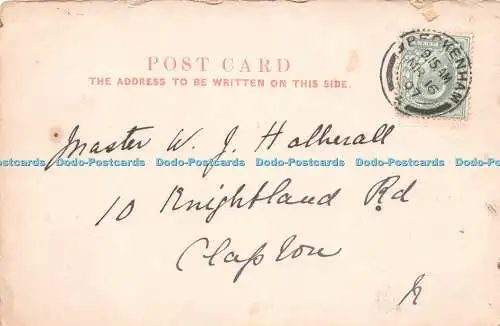 POST CARD
THE ADDRESS TO BE WRITTEN ON THIS SIDE.
BECKENHAM
9 15 AM
Master W. J. Hatherall
Dodo-Postcards Dodo-Postcards Dodo-Postcards Dodo-Postcards Dodo-Postcards
10 Knightland Rd
Clapton